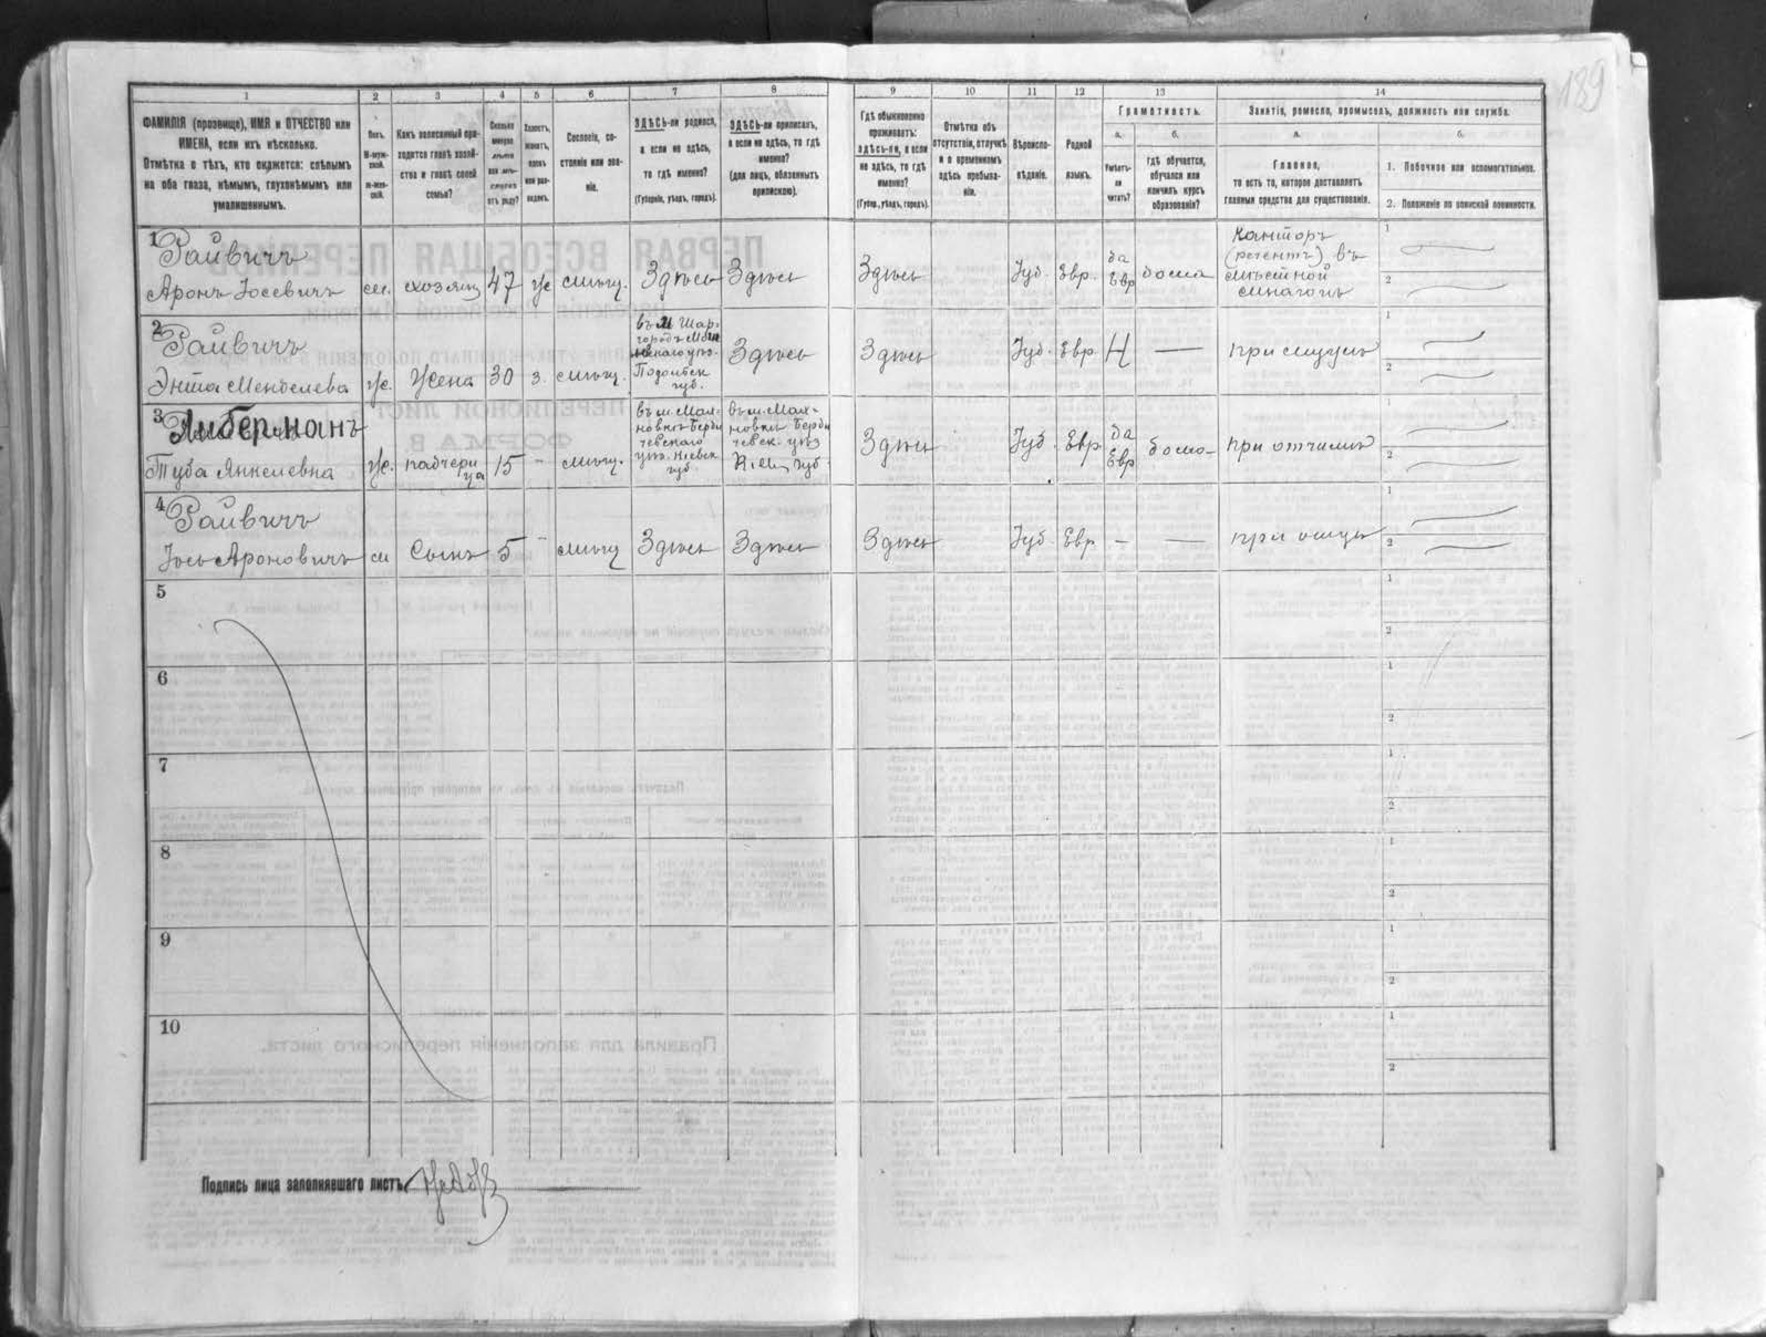 189
1
2
3
4
5
6
7
8
9
10
11
12
13
14
ФАМИЛІЯ (прозвище), ИМЯ и ОТЧЕСТВО или
ИМЕНА, если ихъ нѣсколько.
Отмѣтка о тѣхъ, кто окажется: слѣпымъ
на оба глаза, нѣмымъ, глухонѣмымъ или
умалишеннымъ.
Полъ.
М-муж-
ской.
Ж-жен-
скій.
Какъ записанный при-
ходится главѣ хозяй-
ства и главѣ своей
семьи?
Сколько
минуло
лѣтъ
или мѣ-
сяцевъ
отъ роду?
Холостъ,
женатъ,
вдовъ
или раз-
веденъ.
Сословіе, со-
стояніе или зва-
ніе.
ЗДѢСЬ-ли родился,
а если не здѣсь,
то гдѣ именно?
(Губернія, уѣздъ, городъ).
ЗДѢСЬ-ли приписанъ,
а если не здѣсь, то гдѣ
именно?
(для лицъ, обязанныхъ
припискою).
Гдѣ обыкновенно
проживаетъ:
здѣсь-ли, а если
не здѣсь, то гдѣ
именно?
(Губер., уѣздъ, городъ).
Отмѣтка объ
отсутствіи, отлучкѣ
и о временномъ
здѣсь пребыва-
ніи.
Вѣроиспо-
вѣданіе.
Родной
языкъ.
Грамотность.
а.
Умѣетъ-
ли
читать?
б.
гдѣ обучается,
обучался или
кончилъ курсъ
образованія?
Занятія, ремесло, промыселъ, должность или служба.
а.
Главное,
то есть то, которое доставляетъ
главныя средства для существованія.
б.
1. Побочное или вспомогательное.
2. Положеніе по воинской повинности.
1
Райвичъ
Аронъ Іосевичъ
м.
хозяинъ
47
ж
мѣщ.
Здѣсь
Здѣсь
Здѣсь
Іуд.
Евр.
да
Евр
дома
Канторъ
(регентъ) въ
мѣстной
синагогѣ
1
2
2
Райвичъ
Энта Менделева
ж.
Жена
30
з.
мѣщ.
въ м Шар-
городѣ Моги
левскаго уѣз.
Подольск
губ.
Здѣсь
Здѣсь
Іуд.
Евр.
Н
—
при мужѣ
1
2
3
Либерманъ
Туба Янкелевна
ж.
падчери
ца
15
-
мѣщ.
въ м. Мах-
новкѣ Берди
чевскаго
уѣз. Кіевск
губ
въ м. Мах-
новкѣ Берди
чевск. уѣз
Кіев. губ
Здѣсь
Іуд.
Евр.
да
Евр
дома
при отчимѣ
1
2
4
Райвичъ
Іось Ароновичъ
м
Сынъ
5
-
мѣщ
Здѣсь
Здѣсь
Здѣсь
Іуд.
Евр
-
—
при отцѣ
1
2
5
1
2
6
1
2
7
1
2
8
1
2
9
1
2
10
1
2
Подпись лица заполнявшаго листъ